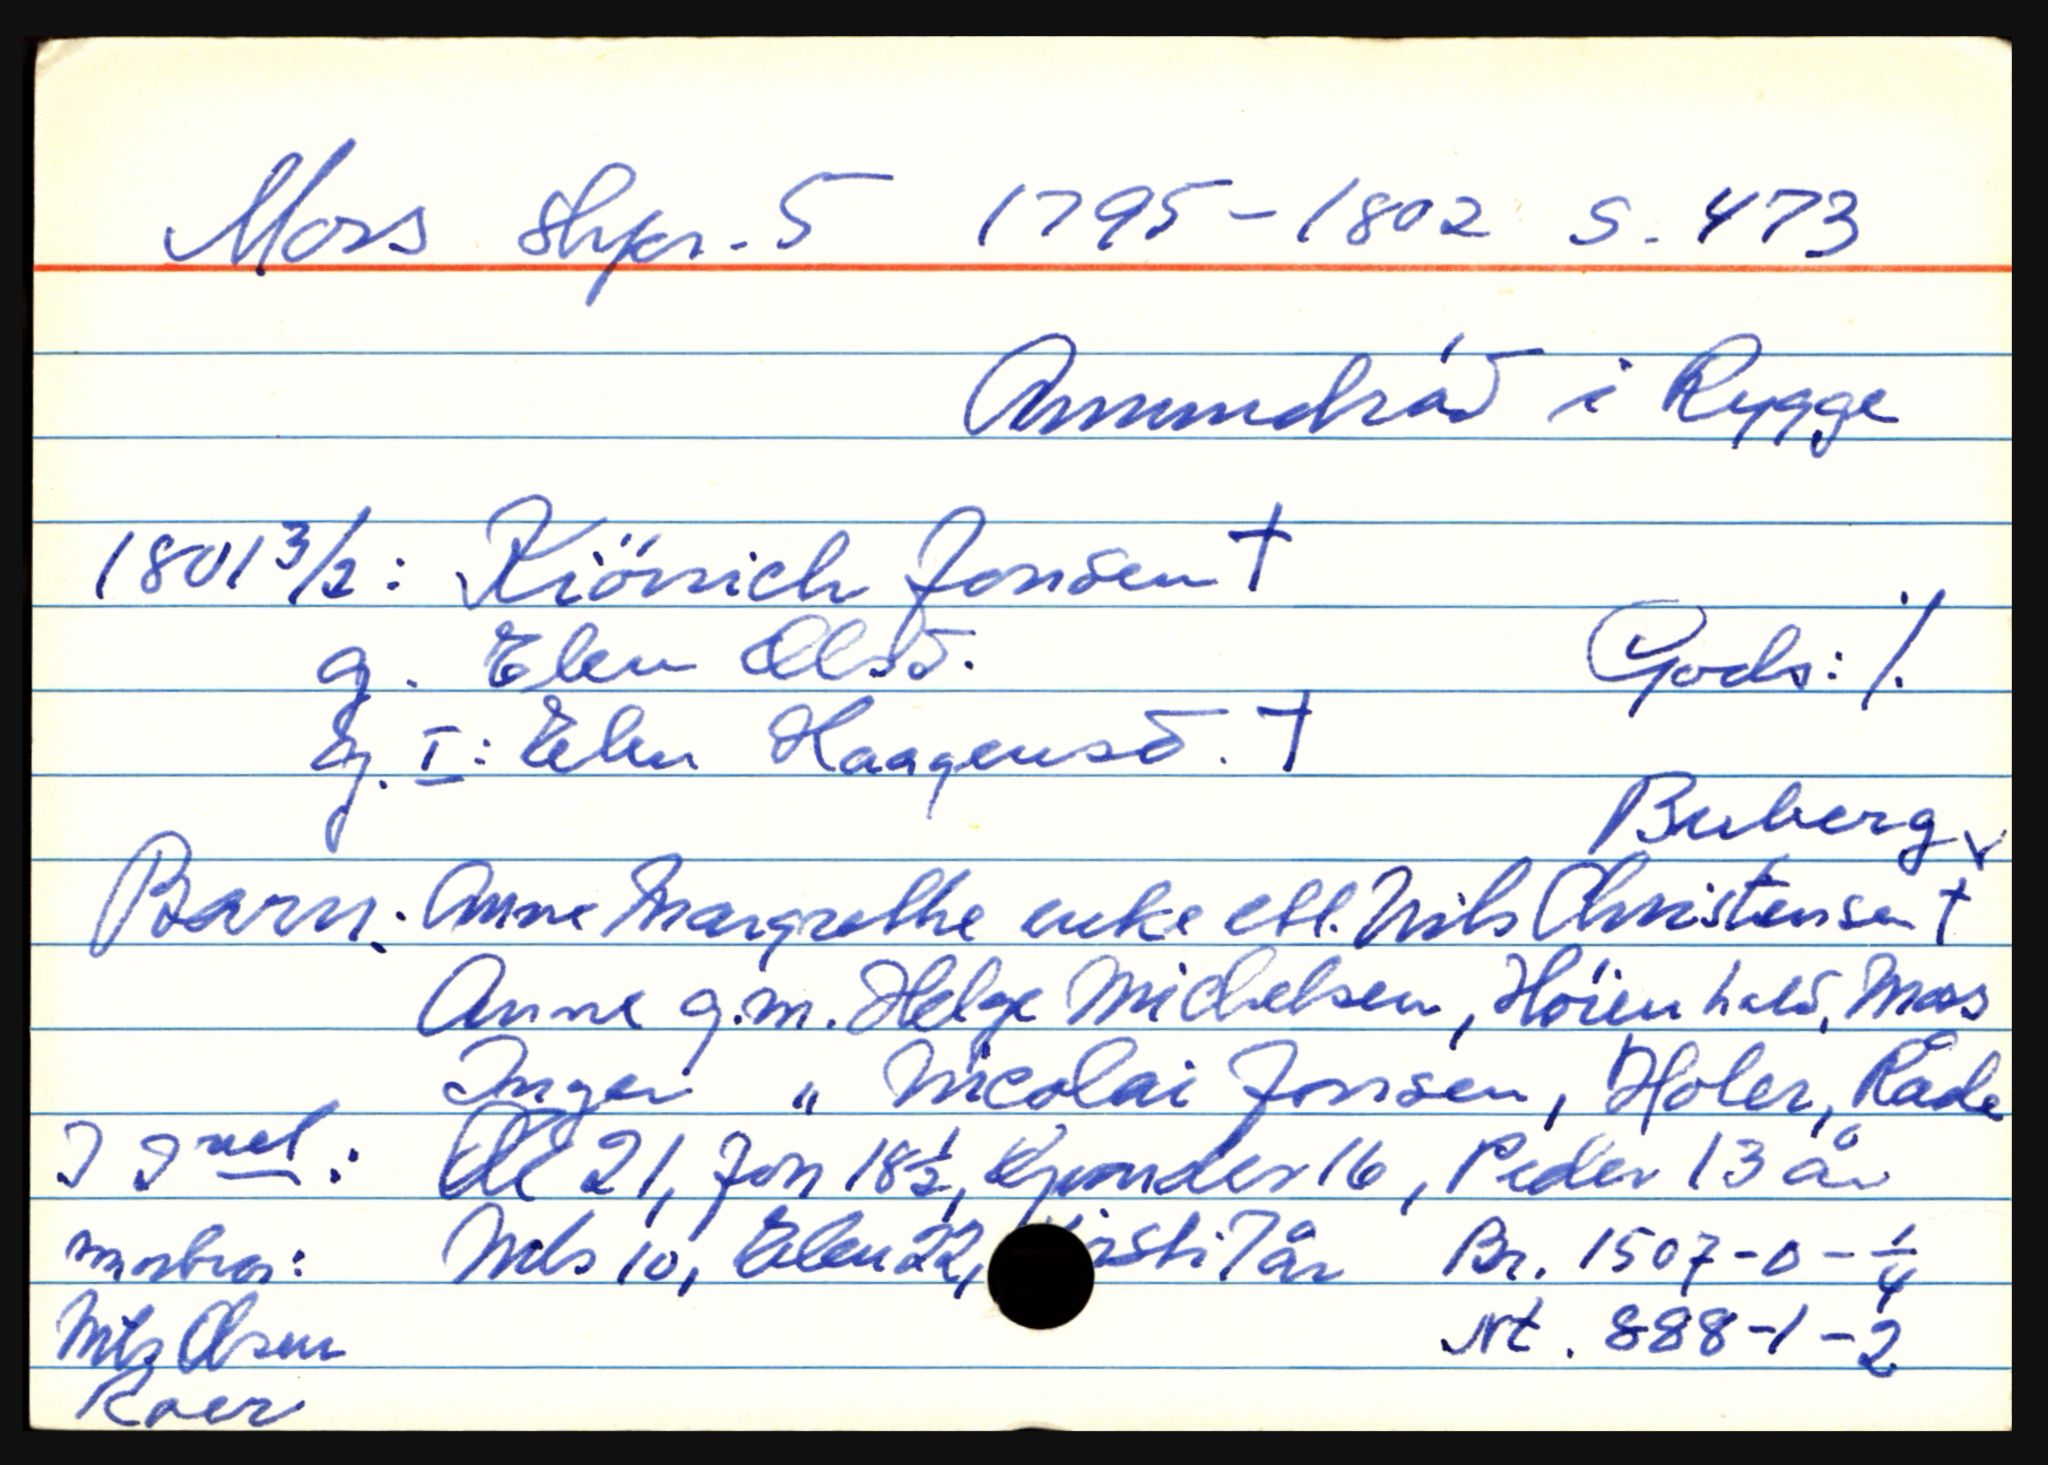 Moss skpr. 5 1795-1802 s. 473
Amundrød i Rygge
1801 3/2: Kiönich Jonsen †
g. Elen Olsd. Gods: ⁒
Eg. I: Elen Haagensd. †
Buberg
Barn: Anne Margrethe enke eft. Nils Christensen †
Anne g.m. Helge Michelsen, Höien hald, Moss
Inger " Nicolai Jonsen, Holer, Råde
I 2net: Ole 21, Jon 18½, Gunder 16, Peder 13 år
morbror: Nils 10, Elen 22, Kirsti 7 år Br. 1507-0-¼
Nils Olsen Nt. 888-1-2
Roer